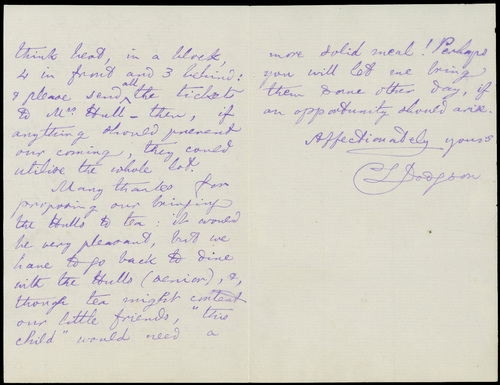 think best, in a block,
4 in front and 3 behind:
& please send all the tickets
to Mrs Hull – then, if
anything should prevent
our coming, they could
utilise the whole lot.
Many thanks for
proposing our bringing
the Hulls to tea: it would
be very pleasant, but we
have to go back to dine
with the Hulls (senior), &,
though tea might content
our little friends, "this
child" would need a
more solid meal! Perhaps
you will let me bring
them some other day, if
an opportunity should arise.
Affectionately yours
CL Dodgson